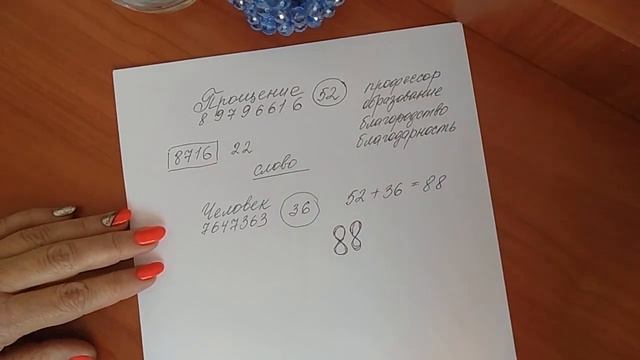 Прощение 52
89796616
профессор
образование
благородство
благодарность
8716 22
слово
Человек 36
7647363
52 + 36 = 88
88